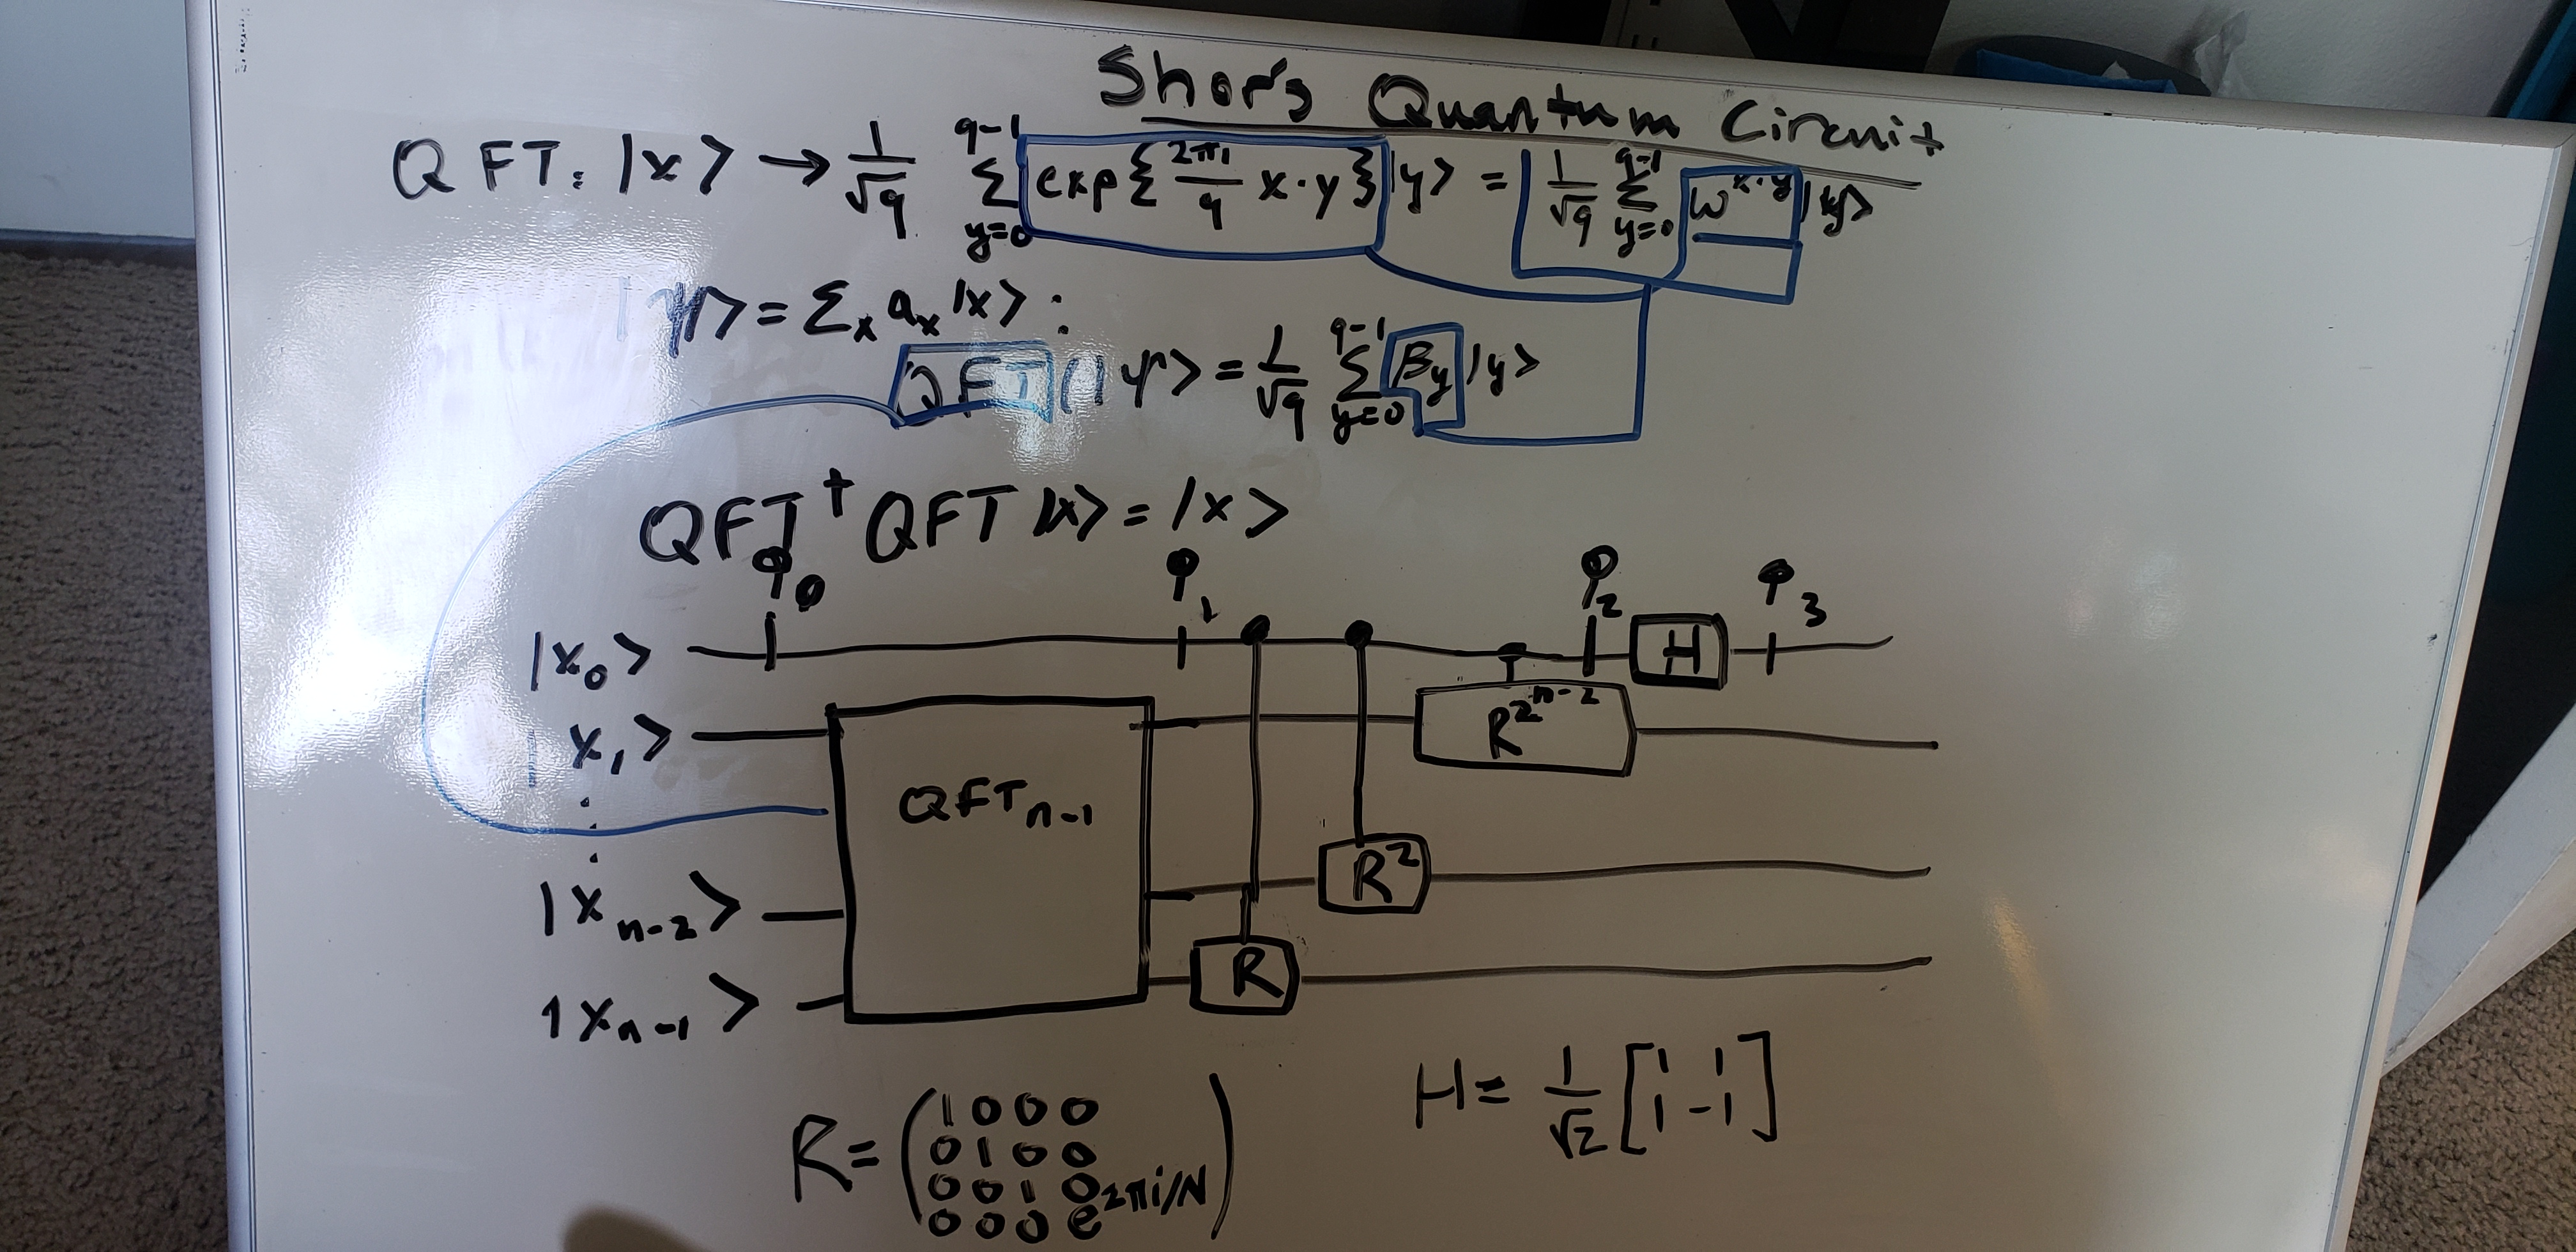 Shor's Quantum Circuit
QFT: |x> → 1/√q Σ_{y=0}^{q-1} exp{2πi/q x·y}|y> = 1/√q Σ_{y=0}^{q-1} ω^{x·y}|y>
|ψ> = Σ_x a_x|x> :
QFT(|ψ> = 1/√q Σ_{y=0}^{q-1} β_y|y>
QFT† QFT |x> = |x>
φ_0 φ_1 φ_2 φ_3
|x_0> H
x_1> R^{2^{n-2}}
QFT_{n-1}
|x_{n-2}> R^2
|x_{n-1}> R
R = (1 0 0 0
0 1 0 0
0 0 1 0
0 0 0 e^{2πi/N})
H = 1/√2 [1 1
1 -1]